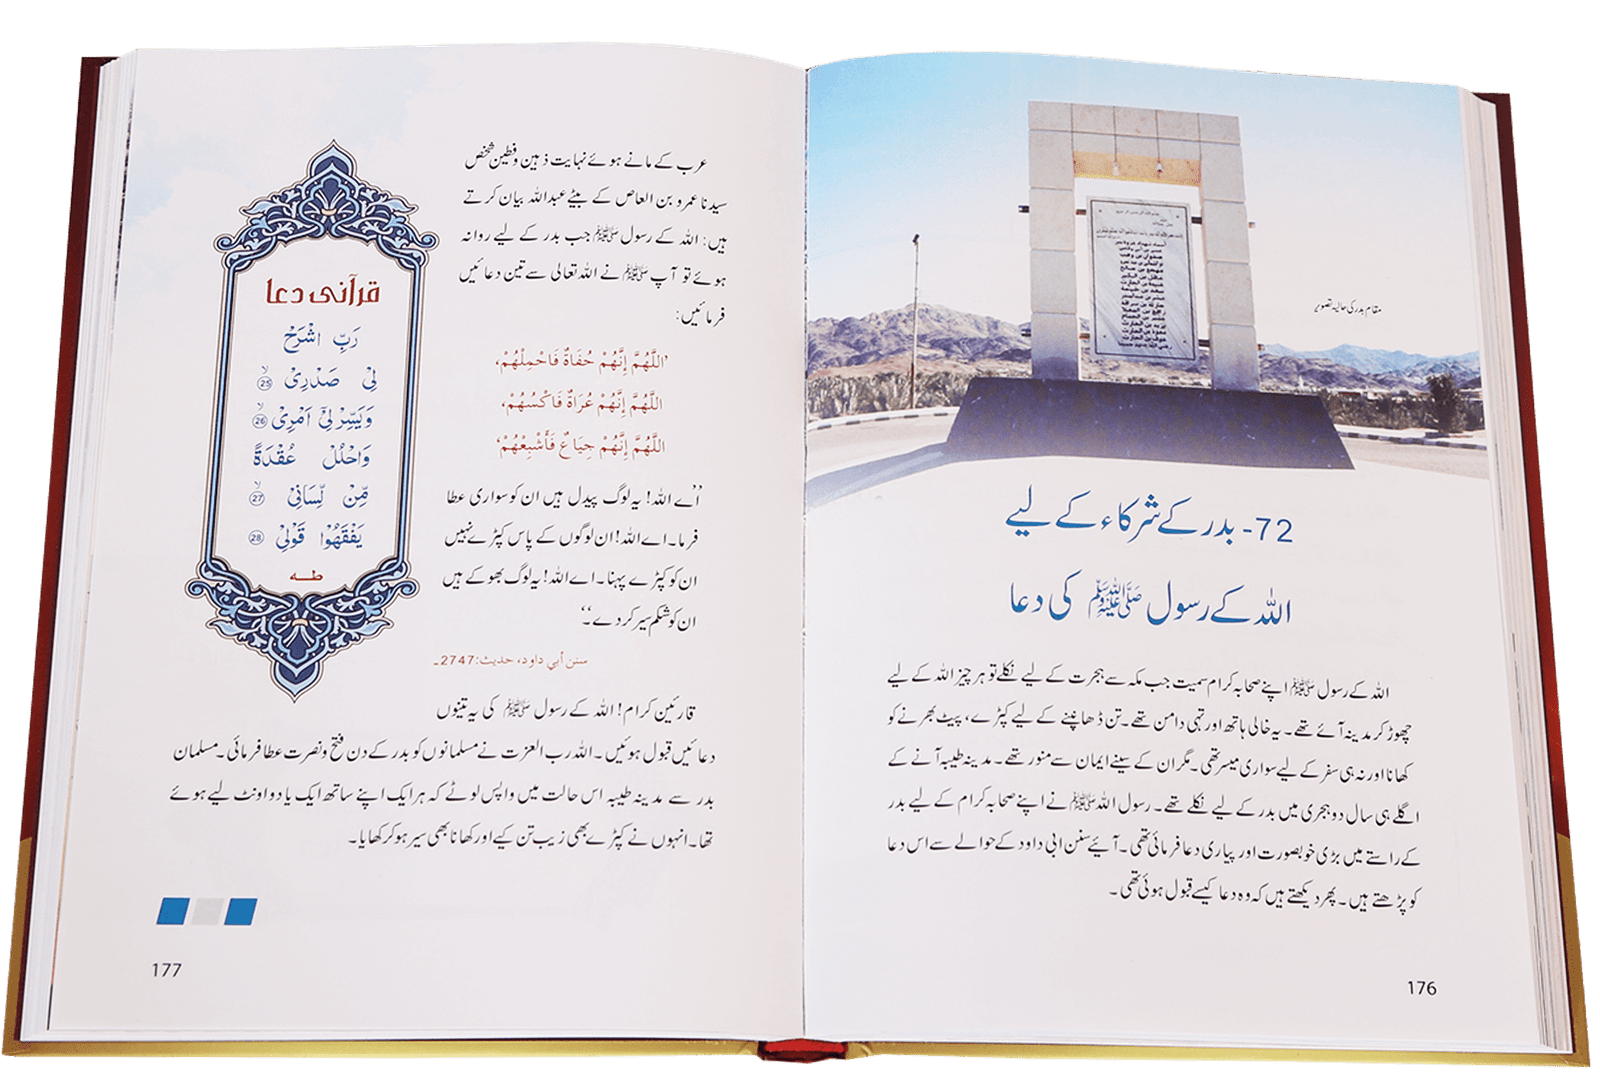 مقام بدر کی حالیہ تصویر
72- بدر کے شرکاء کے لیے
اللہ کے رسول ﷺ کی دعا
اللہ کے رسول ﷺ اپنے صحابہ کرام سمیت جب مکہ سے ہجرت کے لیے نکلے تو ہر چیز اللہ کے لیے
چھوڑ کر مدینہ آئے تھے۔ یہ خالی ہاتھ اور تہی دامن تھے۔ تن ڈھانپنے کے لیے کپڑے، پیٹ بھرنے کو
کھانا اور نہ ہی سفر کے لیے سواری میسر تھی۔ مگر ان کے سینے ایمان سے منور تھے۔ مدینہ طیبہ آنے کے
اگلے ہی سال دو ہجری میں بدر کے لیے نکلے تھے۔ رسول اللہ ﷺ نے اپنے صحابہ کرام کے لیے بدر
کے راستے میں بڑی خوبصورت اور پیاری دعا فرمائی تھی۔ آئیے سنن ابی داود کے حوالے سے اس دعا
کو پڑھتے ہیں۔ پھر دیکھتے ہیں کہ وہ دعا کیسے قبول ہوئی تھی۔
176
عرب کے مانے ہوئے نہایت ذہین و فطین شخص
سیدنا عمرو بن العاص کے بیٹے عبداللہ بیان کرتے
ہیں: اللہ کے رسول ﷺ جب بدر کے لیے روانہ
ہوئے تو آپ ﷺ نے اللہ تعالی سے تین دعائیں
فرمائیں:
'اللَّهُمَّ إِنَّهُمْ حُفَاةٌ فَاحْمِلْهُمْ،
اللَّهُمَّ إِنَّهُمْ عُرَاةٌ فَاكْسُهُمْ،
اللَّهُمَّ إِنَّهُمْ جِيَاعٌ فَأَشْبِعْهُمْ'
”اے اللہ! یہ لوگ پیدل ہیں ان کو سواری عطا
فرما۔ اے اللہ! ان لوگوں کے پاس کپڑے نہیں
ان کو کپڑے پہنا۔ اے اللہ! یہ لوگ بھوکے ہیں
ان کو شکم سیر کر دے۔“
سنن أبي داود، حدیث: 2747۔
قارئین کرام! اللہ کے رسول ﷺ کی یہ تینوں
دعائیں قبول ہوئیں۔ اللہ رب العزت نے مسلمانوں کو بدر کے دن فتح و نصرت عطا فرمائی۔ مسلمان
بدر سے مدینہ طیبہ اس حالت میں واپس لوٹے کہ ہر ایک اپنے ساتھ ایک یا دو اونٹ لیے ہوئے
تھا۔ انہوں نے کپڑے بھی زیب تن کیے اور کھانا بھی سیر ہو کر کھایا۔
قرآنی دعا
رَبِّ اشْرَحْ
لِيْ صَدْرِيْ ۙ 25
وَيَسِّرْ لِيْٓ اَمْرِيْ ۙ 26
وَاحْلُلْ عُقْدَةً
مِّنْ لِّسَانِيْ ۙ 27
يَفْقَهُوْا قَوْلِيْ 28
طٰهٰ
177